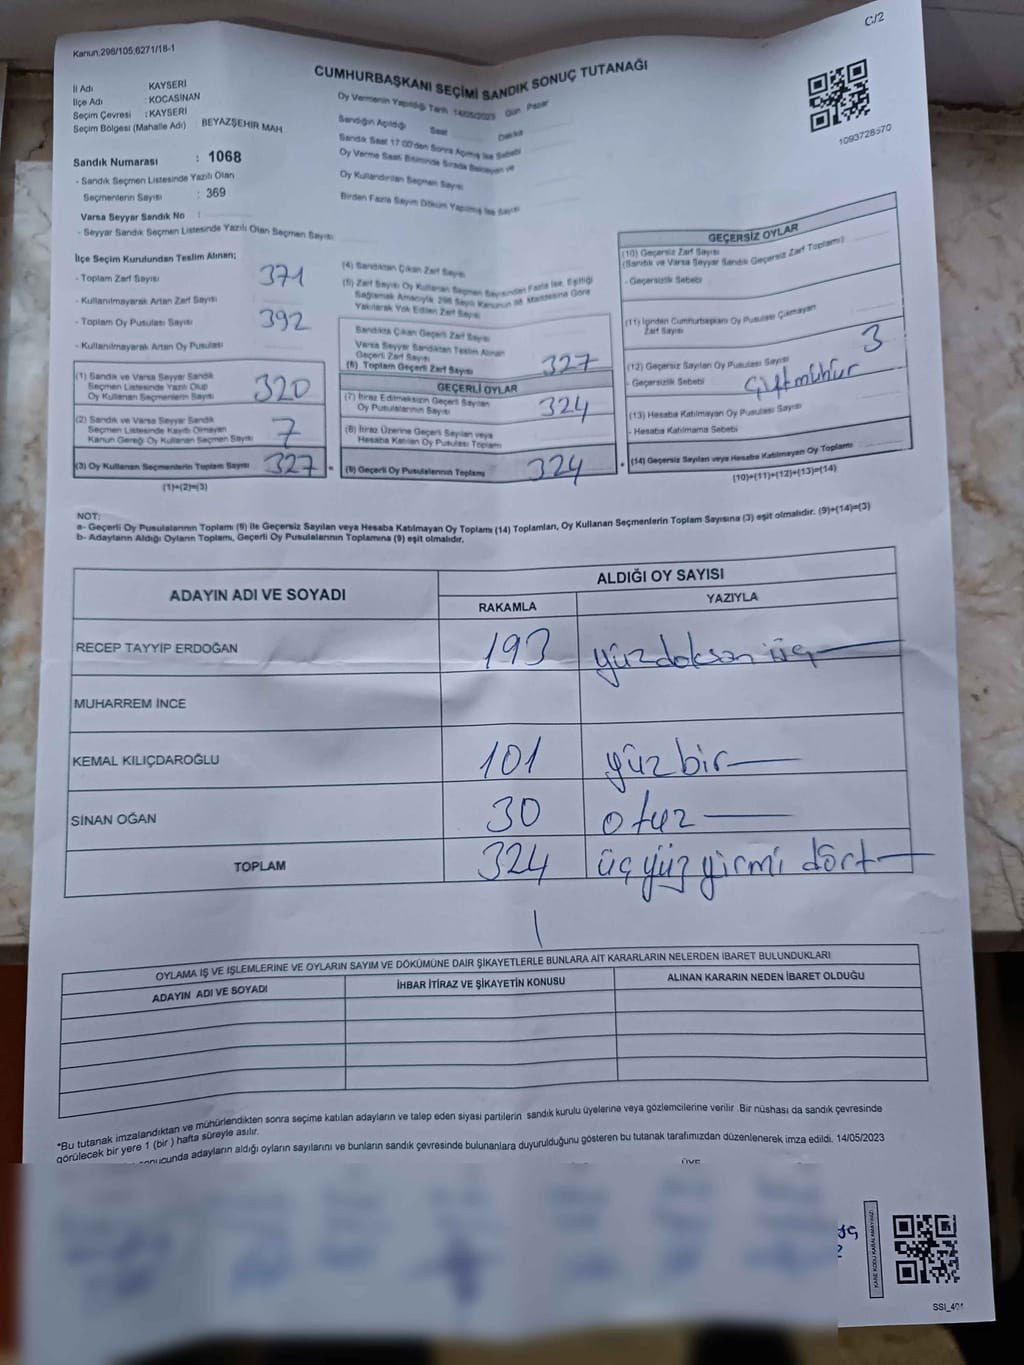 C/2
Kanun.298/105,6271/18-1
CUMHURBAŞKANI SEÇİMİ SANDIK SONUÇ TUTANAĞI
İl Adı : KAYSERİ
İlçe Adı : KOCASİNAN
Seçim Çevresi : KAYSERİ
Seçim Bölgesi (Mahalle Adı) BEYAZŞEHİR MAH
Sandık Numarası : 1068
- Sandık Seçmen Listesinde Yazılı Olan
Seçmenlerin Sayısı : 369
Varsa Seyyar Sandık No :
- Seyyar Sandık Seçmen Listesinde Yazılı Olan Seçmen Sayısı
Oy Vermenin Yapıldığı Tarih 14/05/2023 Gün Pazar
Sandığın Açıldığı Saat Dakika
Sandık Saat 17:00'den Sonra Açılmış İse Sebebi
Oy Verme Saati Bitiminde Sırada Bekleyen ve
Oy Kullandırılan Seçmen Sayısı
Birden Fazla Sayım Döküm Yapılmış İse Sayısı
1093728570
İlçe Seçim Kurulundan Teslim Alınan;
- Toplam Zarf Sayısı 371
- Kullanılmayarak Artan Zarf Sayısı
- Toplam Oy Pusulası Sayısı 392
- Kullanılmayarak Artan Oy Pusulası
(1) Sandık ve Varsa Seyyar Sandık
Seçmen Listesinde Yazılı Olup
Oy Kullanan Seçmenlerin Sayısı 320
(2) Sandık ve Varsa Seyyar Sandık
Seçmen Listesinde Kayıtlı Olmayan
Kanun Gereği Oy Kullanan Seçmen Sayısı 7
(3) Oy Kullanan Seçmenlerin Toplam Sayısı 327
(1)+(2)=(3)
(4) Sandıktan Çıkan Zarf Sayısı
(5) Zarf Sayısı Oy Kullanan Seçmen Sayısından Fazla İse, Eşitliği
Sağlamak Amacıyla 298 Sayılı Kanunun 98. Maddesine Göre
Yakılarak Yok Edilen Zarf Sayısı
Sandıkta Çıkan Geçerli Zarf Sayısı
Varsa Seyyar Sandıktan Teslim Alınan
Geçerli Zarf Sayısı
(6) Toplam Geçerli Zarf Sayısı 327
GEÇERLİ OYLAR
(7) İtiraz Edilmeksizin Geçerli Sayılan
Oy Pusulalarının Sayısı 324
(8) İtiraz Üzerine Geçerli Sayılan veya
Hesaba Katılan Oy Pusulası Toplamı
(9) Geçerli Oy Pusulalarının Toplamı 324
GEÇERSİZ OYLAR
(10) Geçersiz Zarf Sayısı
(Sandık ve Varsa Seyyar Sandık Geçersiz Zarf Toplamı)
- Geçersizlik Sebebi
(11) İçinden Cumhurbaşkanı Oy Pusulası Çıkmayan
Zarf Sayısı
(12) Geçersiz Sayılan Oy Pusulası Sayısı 3
- Geçersizlik Sebebi Çift mühür
(13) Hesaba Katılmayan Oy Pusulası Sayısı
- Hesaba Katılmama Sebebi
(14) Geçersiz Sayılan veya Hesaba Katılmayan Oy Toplamı
(10)+(11)+(12)+(13)=(14)
NOT:
a- Geçerli Oy Pusulalarının Toplamı (9) İle Geçersiz Sayılan veya Hesaba Katılmayan Oy Toplamı (14) Toplamları, Oy Kullanan Seçmenlerin Toplam Sayısına (3) eşit olmalıdır. (9)+(14)=(3)
b- Adayların Aldığı Oyların Toplamı, Geçerli Oy Pusulalarının Toplamına (9) eşit olmalıdır.
ADAYIN ADI VE SOYADI
ALDIĞI OY SAYISI
RAKAMLA YAZIYLA
RECEP TAYYİP ERDOĞAN 193 yüzdoksan üç
MUHARREM İNCE
KEMAL KILIÇDAROĞLU 101 yüz bir
SİNAN OĞAN 30 otuz
TOPLAM 324 üç yüz yirmi dört
OYLAMA İŞ VE İŞLEMLERİNE VE OYLARIN SAYIM VE DÖKÜMÜNE DAİR ŞİKAYETLERLE BUNLARA AİT KARARLARIN NELERDEN İBARET BULUNDUKLARI
ADAYIN ADI VE SOYADI İHBAR İTİRAZ VE ŞİKAYETİN KONUSU ALINAN KARARIN NEDEN İBARET OLDUĞU
*Bu tutanak imzalandıktan ve mühürlendikten sonra seçime katılan adayların ve talep eden siyasi partilerin sandık kurulu üyelerine veya gözlemcilerine verilir .Bir nüshası da sandık çevresinde
görülecek bir yere 1 (bir ) hafta süreyle asılır.
onucunda adayların aldığı oyların sayılarını ve bunların sandık çevresinde bulunanlara duyurulduğunu gösteren bu tutanak tarafımızdan düzenlenerek imza edildi. 14/05/2023
ÜYE
KARE KODU KARALAMAYINIZ!
SSI_401